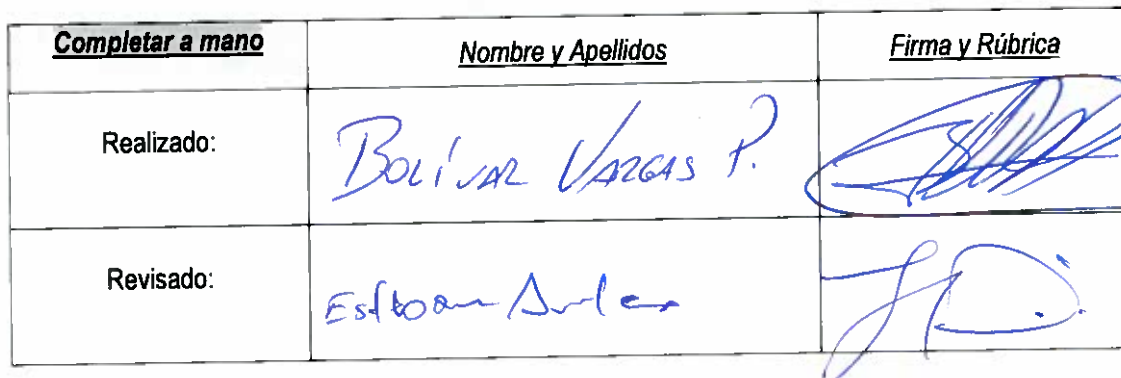 Completar a mano Nombre y Apellidos Firma y Rúbrica
Realizado: BOLÍVAR VARGAS P.
Revisado: